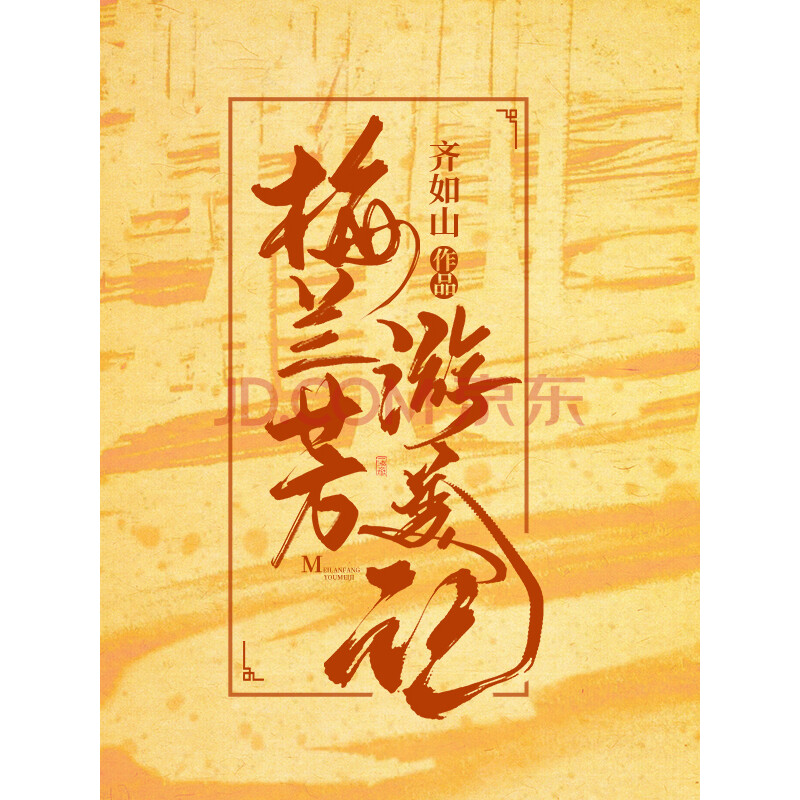 梅兰芳
游美记
齐如山
作品
MEILANFANG
YOUMEIJI
JD.COM 京东